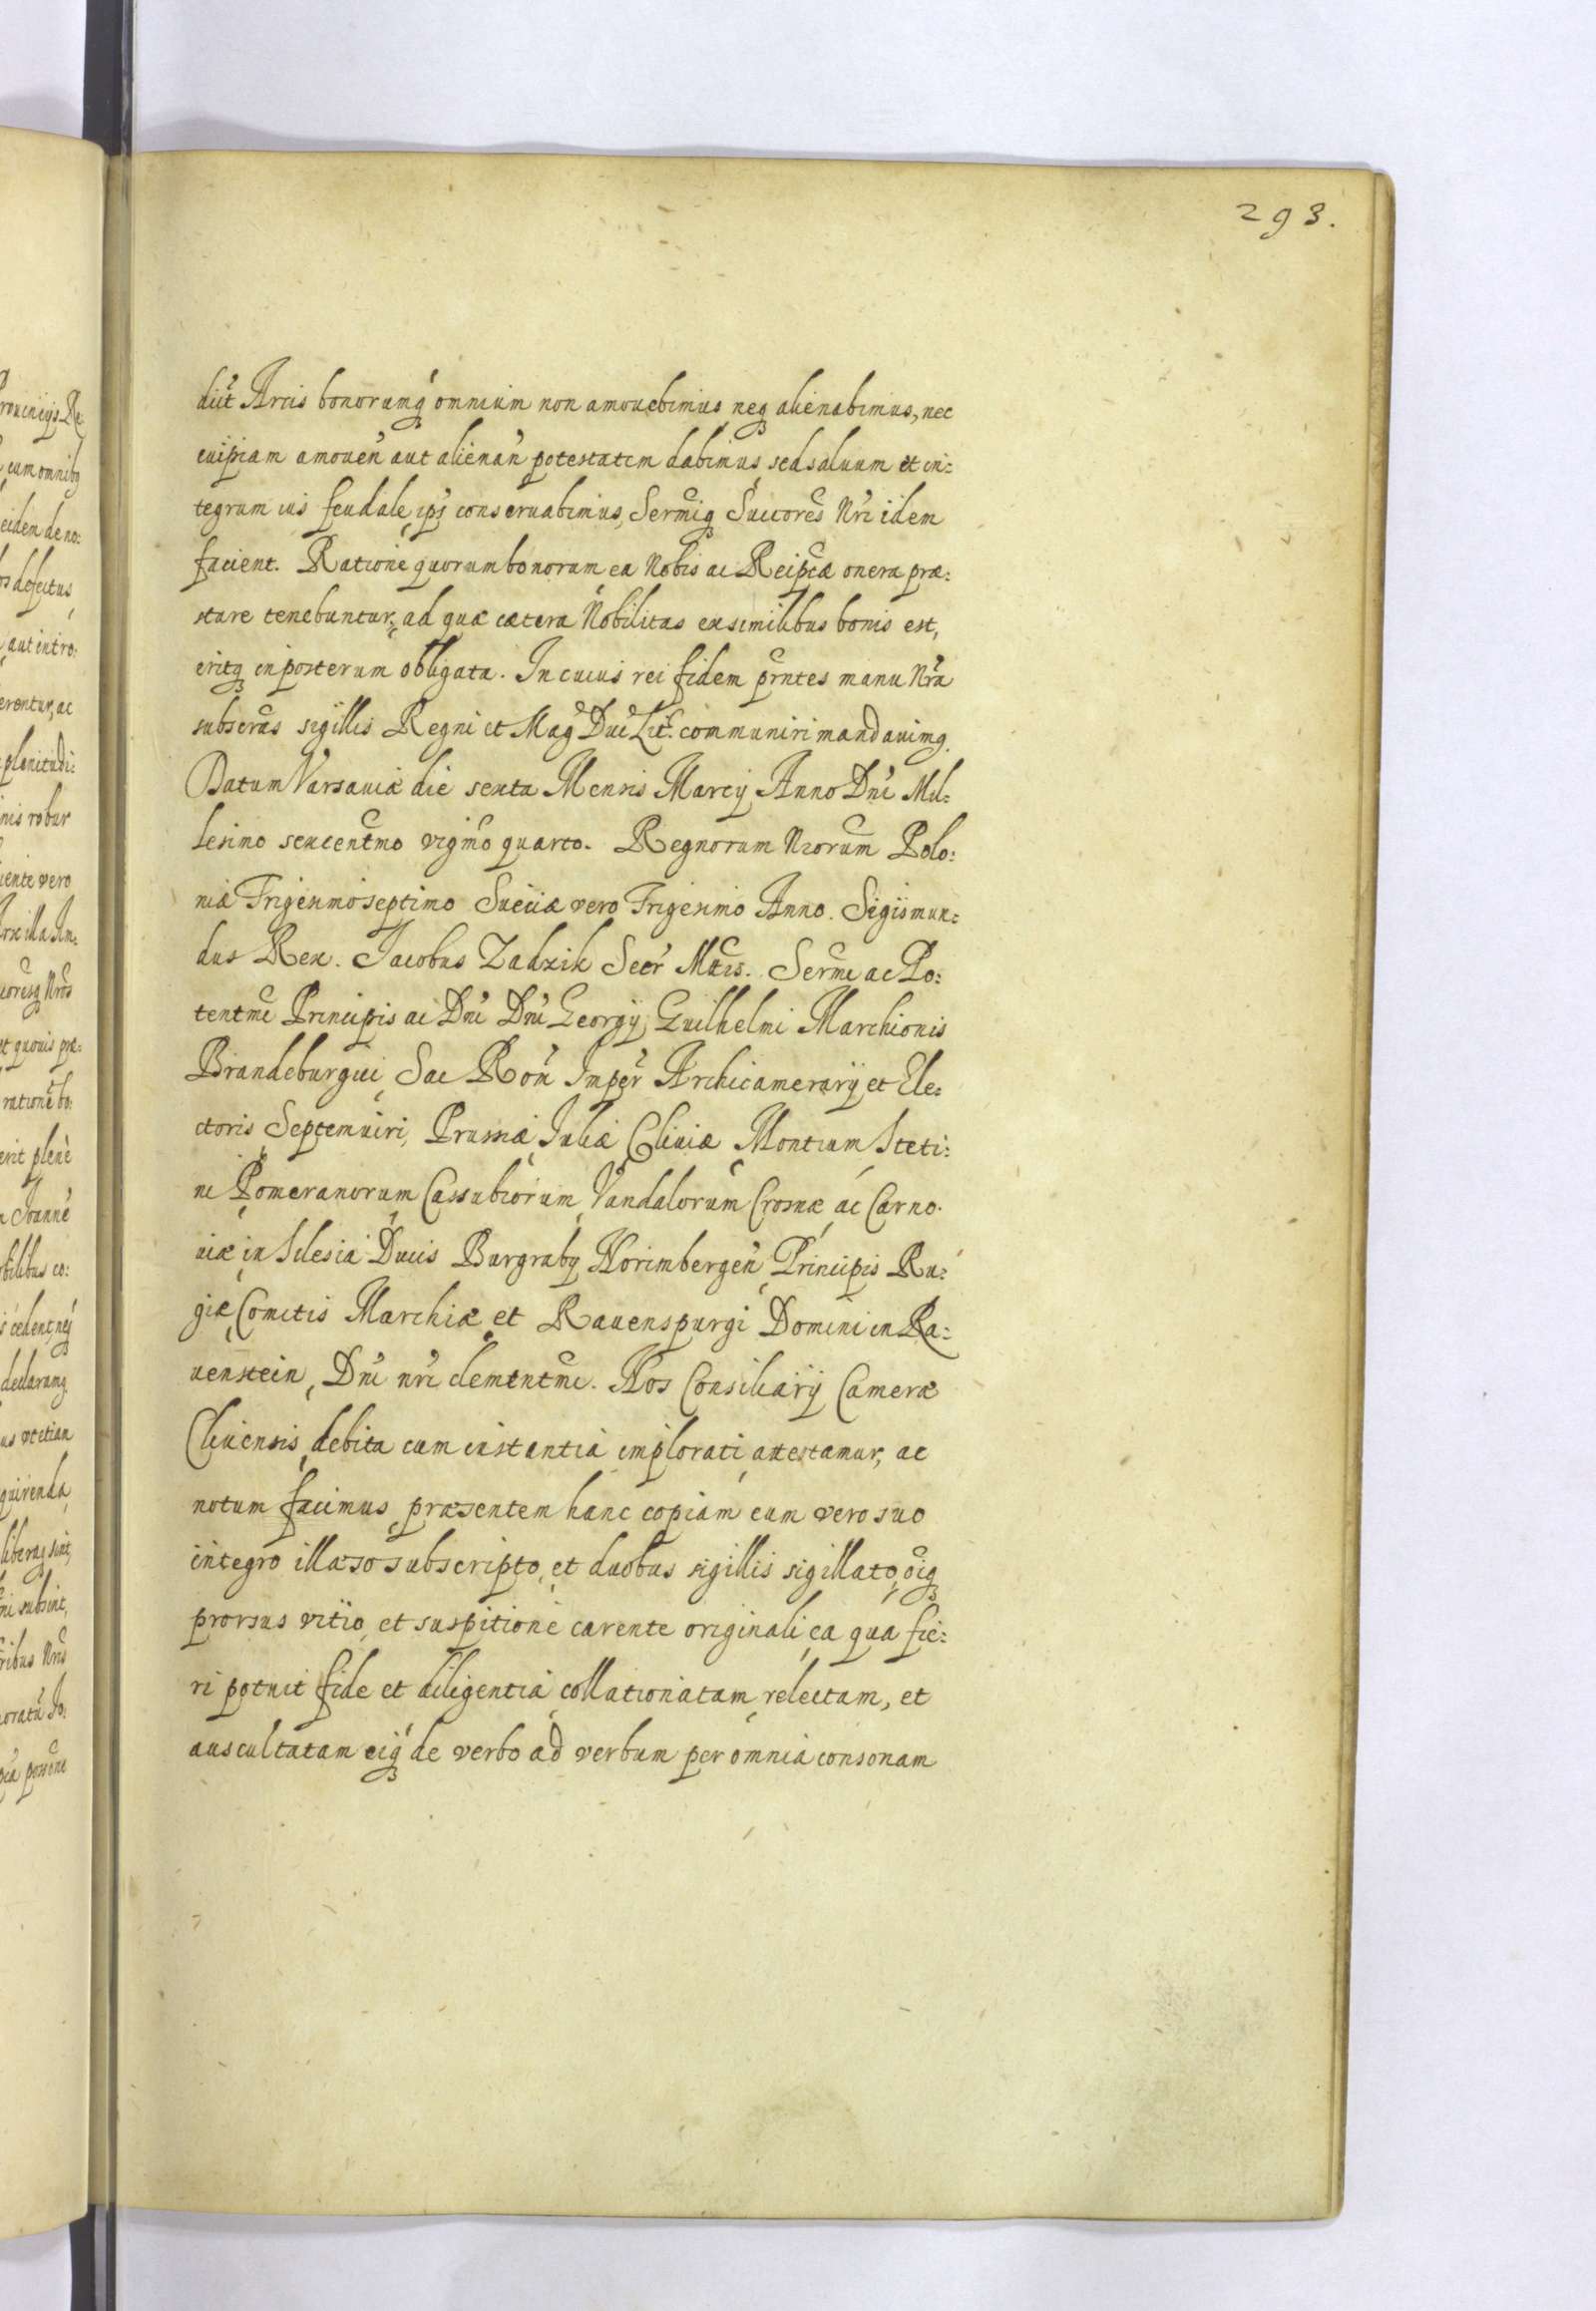 293.
diit Arcis bonorumq omnium non amouebimus neq alienabimus, nec
cuipiam amouen aut alienan potestatem dabimus, sed saluum et in:
tegrum ius feudale ips conseruabimus, Sermiq Succores Nri idem
facient. Ratione quorum bonorum ea Nobis ac Reipcæ onera præ:
stare tenebuntur, ad quæ cætera Nobilitas ex similibus bonis est,
eritq in posterum obligata. In cuius rei fidem prntes manu Nra
subscras sigillis Regni et Mag Duc Lit. communiri mandauimq.
Datum Varsauiæ die sexta Mensis Marcij Anno Dni Mil:
lesimo sexcentmo vigmo quarto. Regnorum Nrorum Polo:
niæ Trigesimoseptimo Sueciæ vero Trigesimo Anno. Sigismun:
dus Rex. Jacobus Zadzik Secr Mttis. Sermi ac Po:
tentmi Principis ac Dni Dni Georgij Guilhelmi Marchionis
Brandeburgici, Sac Rom Imper Archicamerarij et Ele:
ctoris Septemuiri, Prussiæ, Juliæ, Cliuiæ, Montium, Steti:
ni, Pomeranorum, Cassubiorum, Vandalorum, Crosnæ, ac Carno.
uiæ in Silesia Ducis, Burgrabij Norimbergen, Principis Ru:
giæ, Comitis Marchiæ et Rauenspurgi Domini in Ra:
uenstein, Dni nri clementmi. Nos Consiliarij Cameræ
Cliuensis, debita cum instantia implorati, attestamur, ac
notum facimus, præsentem hanc copiam cum vero suo
integro illæso subscripto, et duobus sigillis sigillato, oiq
prorsus vitio, et suspitione carente originali, ea qua fie:
ri potuit fide et diligentia collationatam, relectam, et
auscultatam eiq de verbo ad verbum per omnia consonam